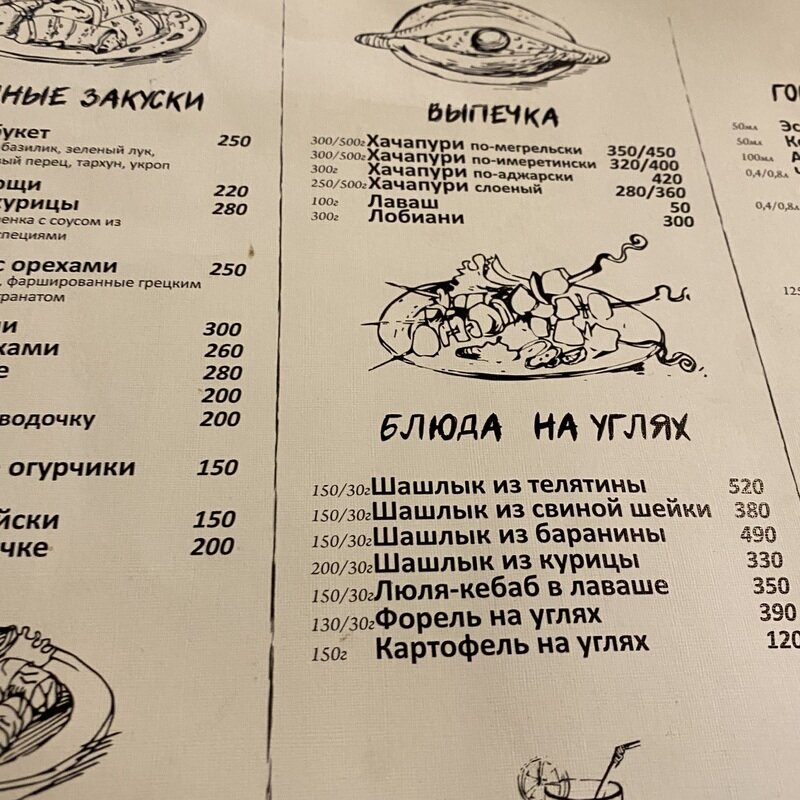 ЗАКУСКИ
250
базилик, зеленый лук,
перец, тархун, укроп
220
280
с соусом из
специями
с орехами 250
фаршированные грецким
300
260
280
200
водочку 200
огурчики 150
150
200
ВЫПЕЧКА
300/500г Хачапури по-мегрельски 350/450
300/500г Хачапури по-имеретински 320/400
300г Хачапури по-аджарски 420
250/500г Хачапури слоеный 280/360
100г Лаваш 50
300г Лобиани 300
БЛЮДА НА УГЛЯХ
150/30г Шашлык из телятины 520
150/30г Шашлык из свиной шейки 380
150/30г Шашлык из баранины 490
200/30г Шашлык из курицы 330
150/30г Люля-кебаб в лаваше 350
130/30г Форель на углях 390
150г Картофель на углях 120
50мл
50мл
100мл
0,4/0,8л
0,4/0,8л